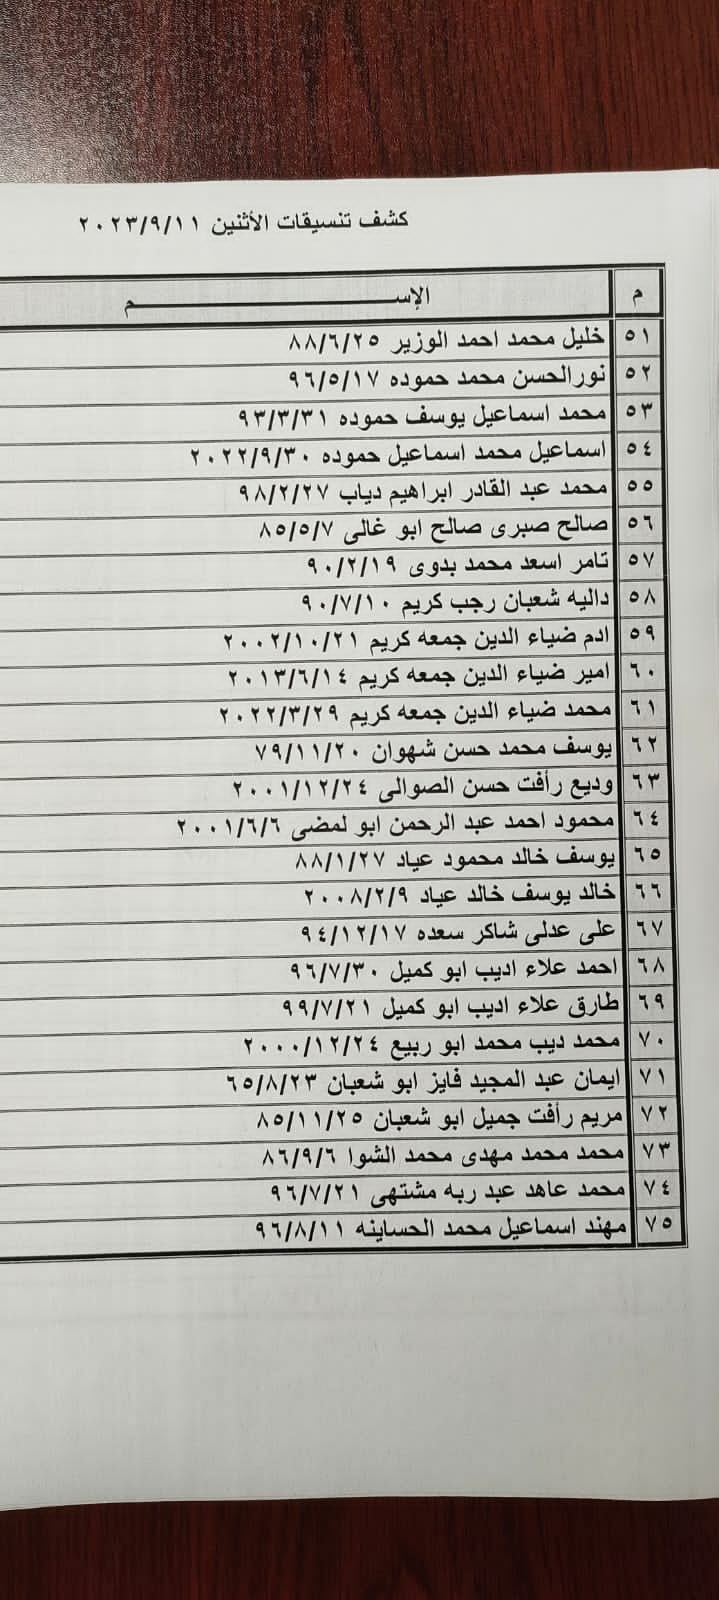 كشف تنسيقات الأثنين ٢٠٢٣/٩/١١
م الإســـــــــــــــــم
٥١ خليل محمد احمد الوزير ٨٨/٦/٢٥
٥٢ نورالحسن محمد حموده ٩٦/٥/١٧
٥٣ محمد اسماعيل يوسف حموده ٩٣/٣/٣١
٥٤ اسماعيل محمد اسماعيل حموده ٢٠٢٢/٩/٣٠
٥٥ محمد عبد القادر ابراهيم دياب ٩٨/٢/٢٧
٥٦ صالح صبرى صالح ابو غالى ٨٥/٥/٧
٥٧ تامر اسعد محمد بدوى ٩٠/٢/١٩
٥٨ داليه شعبان رجب كريم ٩٠/٧/١٠
٥٩ ادم ضياء الدين جمعه كريم ٢٠٠٢/١٠/٢١
٦٠ امير ضياء الدين جمعه كريم ٢٠١٣/٦/١٤
٦١ محمد ضياء الدين جمعه كريم ٢٠٢٢/٣/٢٩
٦٢ يوسف محمد حسن شهوان ٧٩/١١/٢٠
٦٣ وديع رأفت حسن الصوالى ٢٠٠١/١٢/٢٤
٦٤ محمود احمد عبد الرحمن ابو لمضى ٢٠٠١/٦/٦
٦٥ يوسف خالد محمود عياد ٨٨/١/٢٧
٦٦ خالد يوسف خالد عياد ٢٠٠٨/٢/٩
٦٧ على عدلى شاكر سعده ٩٤/١٢/١٧
٦٨ احمد علاء اديب ابو كميل ٩٦/٧/٣٠
٦٩ طارق علاء اديب ابو كميل ٩٩/٧/٢١
٧٠ محمد ديب محمد ابو ربيع ٢٠٠٠/١٢/٢٤
٧١ ايمان عبد المجيد فايز ابو شعبان ٦٥/٨/٢٣
٧٢ مريم رأفت جميل ابو شعبان ٨٥/١١/٢٥
٧٣ محمد محمد مهدى محمد الشوا ٨٦/٩/٦
٧٤ محمد عاهد عبد ربه مشتهى ٩٦/٧/٢١
٧٥ مهند اسماعيل محمد الحساينه ٩٦/٨/١١